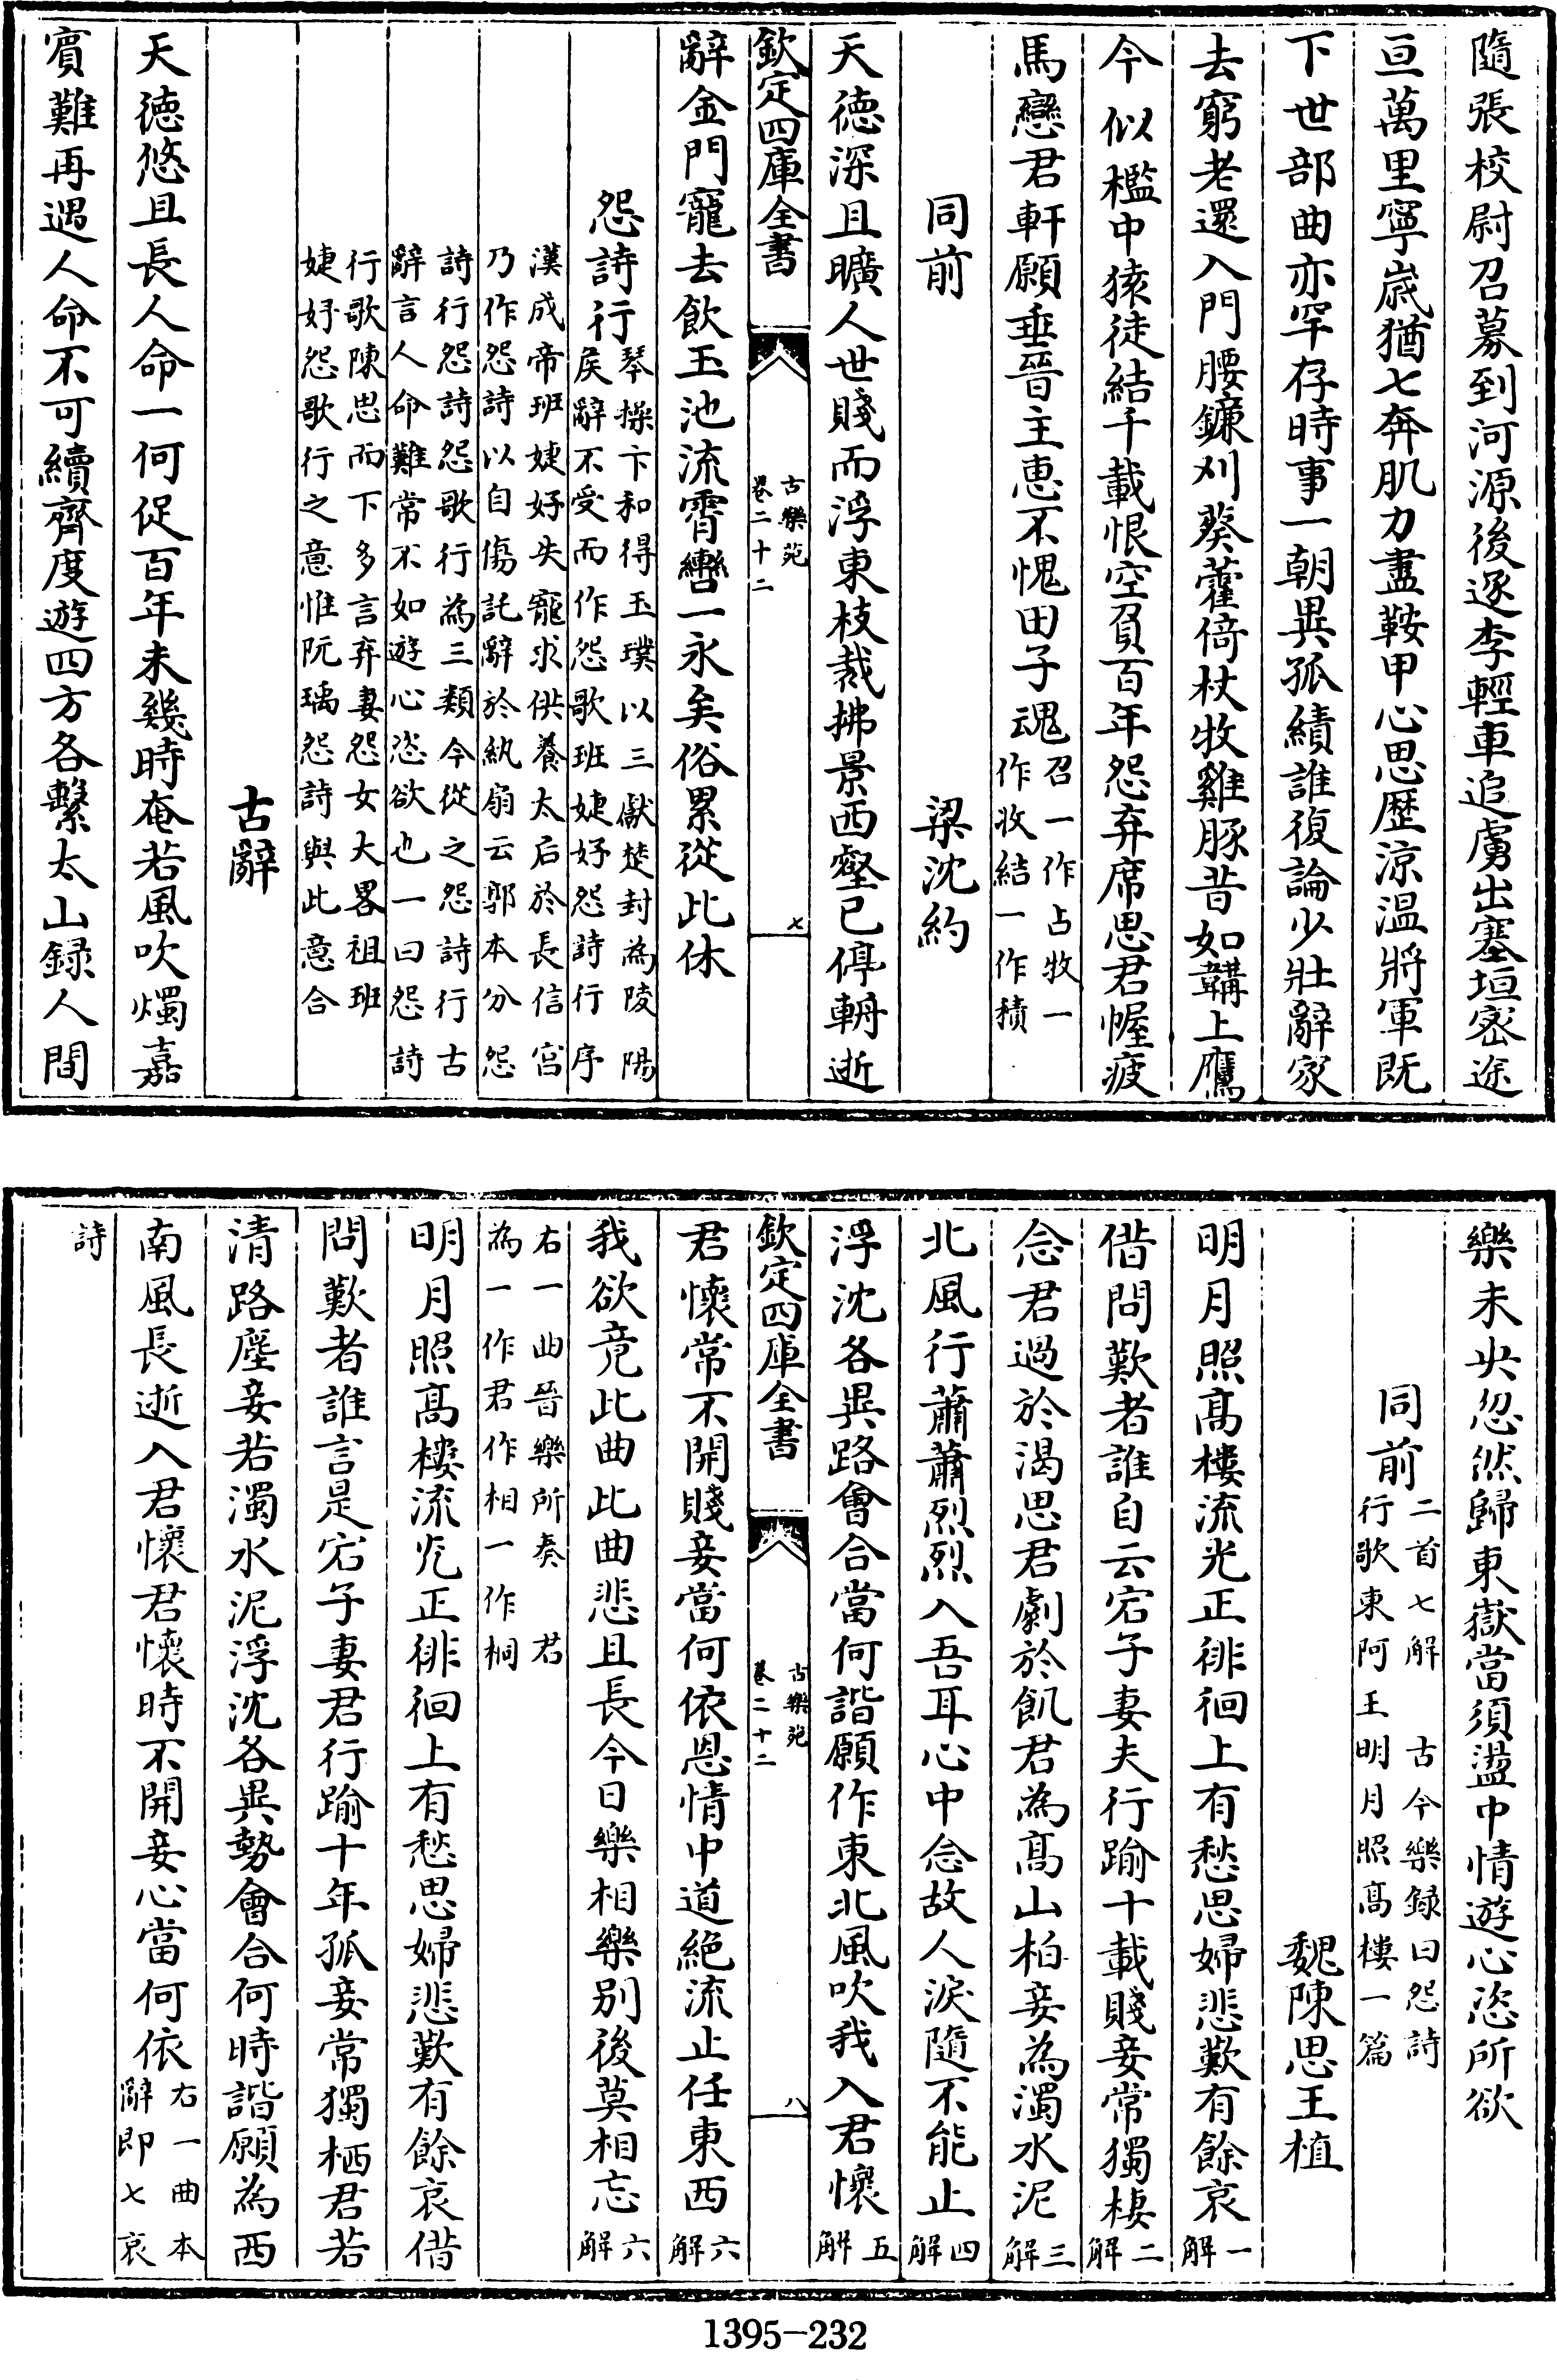 隨張校尉召募到河源後逐李輕車追虜出塞垣密途
亘萬里寧歲猶七奔肌力盡鞍甲心思歴涼温將軍既
下世部曲亦罕存時事一朝異孤績誰復論少壯辭家
去窮老還入門腰鐮刈葵藿倚杖牧雞豚昔如韝上鷹
今似檻中猿徒結千載恨空負百年怨弃席思君幄疲
馬戀君軒願垂晉主惠不愧田子魂
召一作占牧一
作收結一作積
同前
梁沈約
天德深且曠人世賤而浮東枝裁拂景西壑已停輈逝
欽定四庫全書
古樂苑
卷二十二
七
辭金門寵去飲玉池流霄轡一永矣俗累從此休
怨詩行
琴操卞和得玉璞以三獻楚封為陵陽
侯辭不受而作怨歌班婕妤怨詩行序
漢成帝班婕妤失寵求供養太后於長信宮
乃作怨詩以自傷託辭於紈扇云郭本分怨
詩行怨詩怨歌行為三類今從之怨詩行古
辭言人命難常不如遊心恣欲也一曰怨詩
行歌陳思而下多言弃妻怨女大畧祖班
婕妤怨歌行之意惟阮瑀怨詩與此意合
古辭
天德悠且長人命一何促百年未幾時奄若風吹燭嘉
賓難再遇人命不可續齊度遊四方各繫太山録人間
樂未央忽然歸東嶽當須盪中情遊心恣所欲
同前
二首七解 古今樂録曰怨詩
行歌東阿王明月照高樓一篇
魏陳思王植
明月照高樓流光正徘徊上有愁思婦悲歎有餘哀
一解
借問歎者誰自云宕子妻夫行踰十載賤妾常獨棲
二解
念君過於渴思君劇於飢君為高山柏妾為濁水泥
三解
北風行蕭蕭烈烈入吾耳心中念故人淚隨不能止
四解
浮沈各異路會合當何諧願作東北風吹我入君懷
五解
欽定四庫全書
古樂苑
卷二十二
八
君懷常不開賤妾當何依恩情中道絕流止任東西
六解
我欲竟此曲此曲悲且長今日樂相樂别後莫相忘
六解
右一曲晉樂所奏 君
為一作君作相一作桐
明月照高樓流光正徘徊上有愁思婦悲歎有餘哀借
問歎者誰言是宕子妻君行踰十年孤妾常獨栖君若
清路塵妾若濁水泥浮沈各異勢會合何時諧願為西
南風長逝入君懷君懷時不開妾心當何依
右一曲本
辭即七哀
詩
1395-232